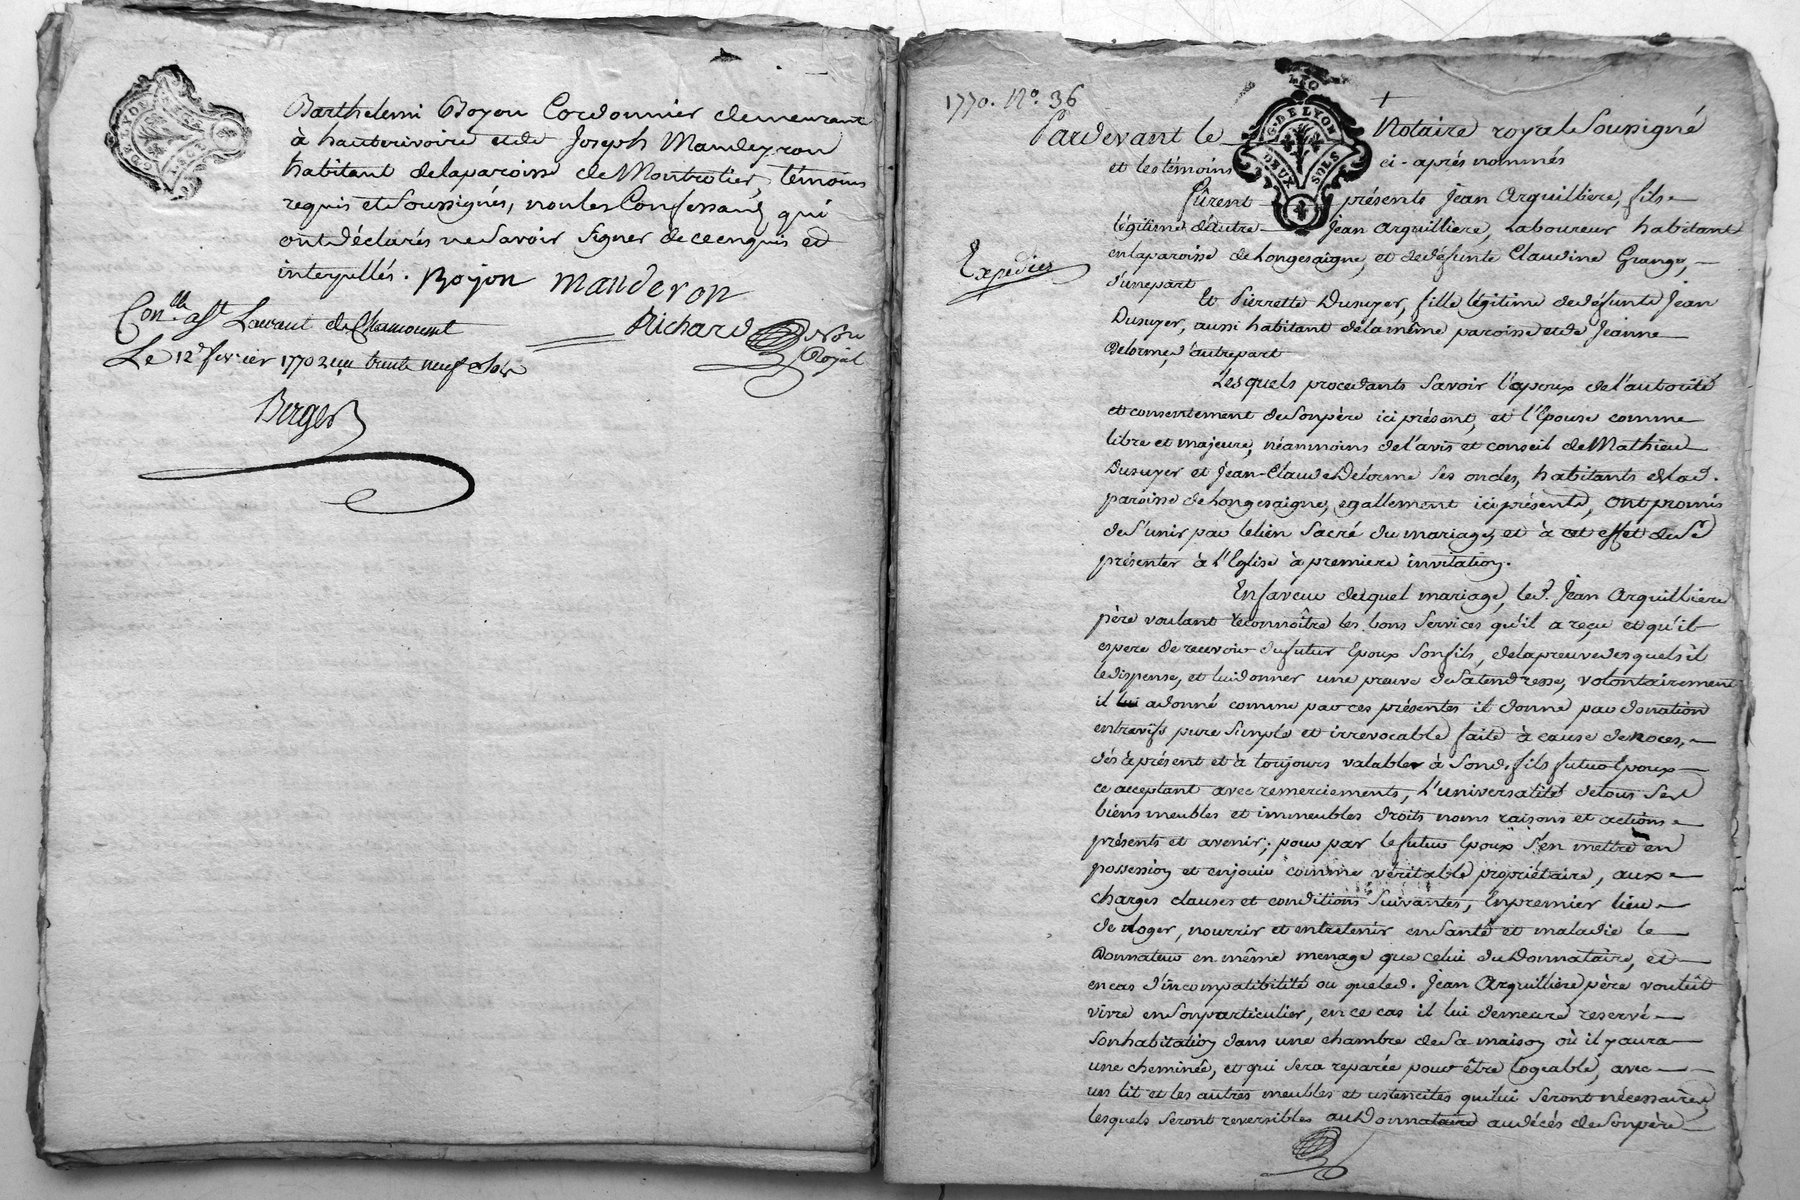 Barthelemi Boyon Cordonnier demeurant
à hauterivoire et de Joseph Mandeyron
habitant de la paroisse de Montrotier, témoins
requis et soussignés, non les Confessants qui
ont déclarés ne savoir signer de ce enquis et
interpellés. Boyon manderon
Richard Nore
Royal
Con.lle a St Laurant de Chamousset
Le 12e fevrier 1770 reçu trente neuf sols
Berger
1770. No. 36
G. DE LYON
DEUX SOLS
Pardevant le Notaire royal Soussigné
et les témoins ci-après nommés
fûrent présents Jean Arquilliere, fils
légitime d'autre Jean Arquilliere, Laboureur habitant
en la paroisse de Longesaigne, et de défunte Claudine Grange,
d'une part
Expédiée
Et Pierrette Dusuyer, fille légitime de défunt Jean
Dusuyer, aussi habitant de la même paroisse et de Jeanne
Delorme, d'autre part
Lesquels procedants savoir l'époux de l'autorité
et consentement de son père ici présent, et l'Epouse comme
libre et majeure, néammoins de l'avis et conseil de Mathieu
Dusuyer et Jean-Claude Delorme ses oncles, habitants de lad.
paroisse de Longesaigne, egallement ici présents, ont promis
de s'unir par le lien sacré du mariage, et à cet effet de se
présenter à l'Eglise à premiere invitation.
En faveur duquel mariage, led. Jean Arquilliere
père voulant reconnoître les bons services qu'il a reçu et qu'il
espere de recevoir du futur Epoux son fils, de la preuve desquels il
le dispense, et lui donner une preuve de sa tendresse, volontairement
il lui a donné comme par ces présentes il donne par donation
entravifs pure simple et irrevocable faite à cause de noces,
dés à présent et à toujours valable à sond. fils futur Epoux
ce acceptant avec remerciements, l'universalité de tous ses
biens meubles et immeubles droits noms raisons et actions
présents et avenir; pour par le futur Epoux s'en mettre en
possession et en jouir comme véritable propriétaire, aux
charges clauses et conditions suivantes, en premier lieu
de loger, nourrir et entretenir en santé et maladie le
Donnateur en même menage que celui du Donnataire, et
en cas d'incompatibilité ou que led. Jean Arquilliere père voulût
vivre en son particulier, en ce cas il lui demeure reservé
son habitation dans une chambre de sa maison où il y aura
une cheminée, et qui sera reparée pour être logeable, avec
un lit et les autres meubles et ustenciles qui lui seront nécessaires,
lesquels seront reversibles au Donnataire au décés de son père